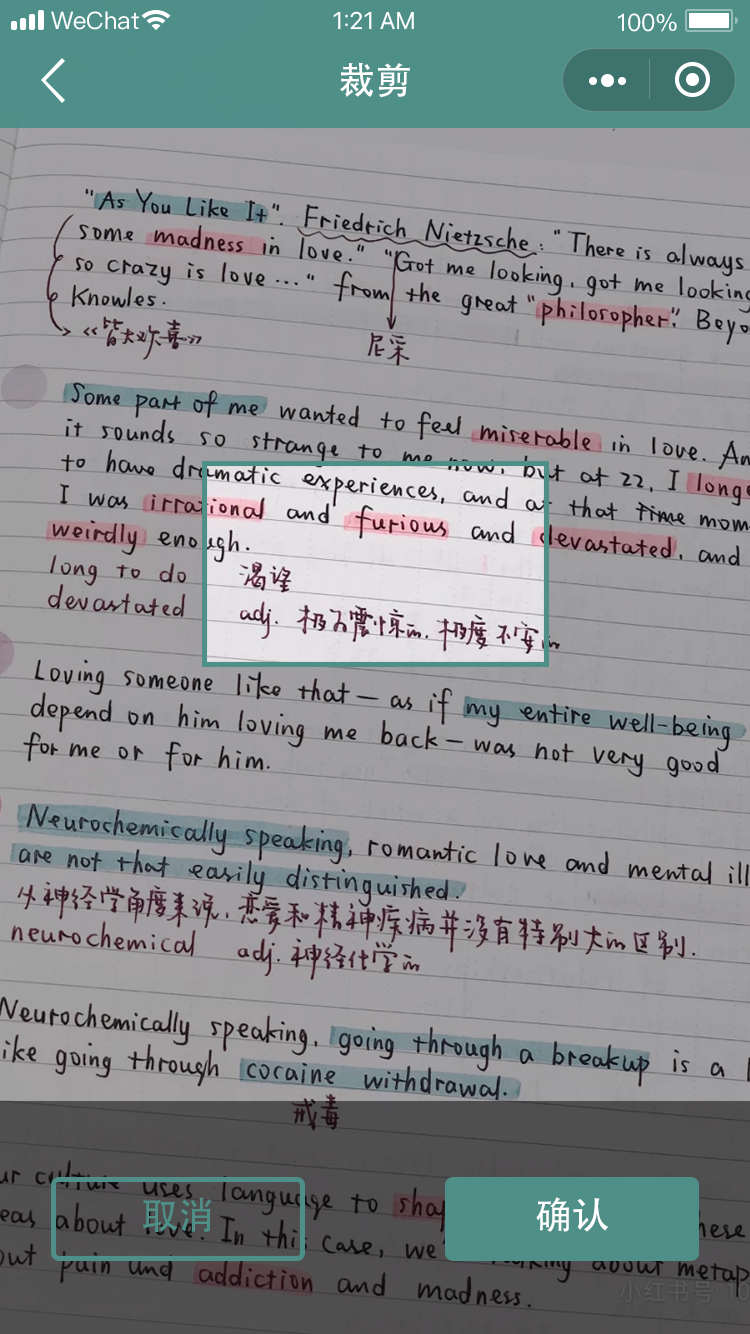 WeChat 1:21 AM 100%
裁剪
"As You Like It". Friedrich Nietzsche: "There is always
some madness in love." "Got me looking, got me looking
so crazy is love..." from the great "philosopher". Beyo
Knowles.
《皆大欢喜》
尼采
Some part of me wanted to feel miserable in love. An
it sounds so strange to me now, but at 22, I longe
to have dramatic experiences, and at that time mom
I was irrational and furious and devastated, and
weirdly enough.
long to do 渴望
devastated adj. 极为震惊的. 极度不安的
Loving someone like that — as if my entire well-being
depend on him loving me back — was not very good
for me or for him.
Neurochemically speaking, romantic love and mental ill
are not that easily distinguished.
从神经学角度来说, 恋爱和精神疾病并没有特别大的区别.
neurochemical adj. 神经化学的
Neurochemically speaking, going through a breakup is a l
ike going through cocaine withdrawal.
戒毒
ur culture uses language to shap here
eas about love. In this case, we' about metap
out pain and addiction and madness.
取消
确认
小红书号: 10